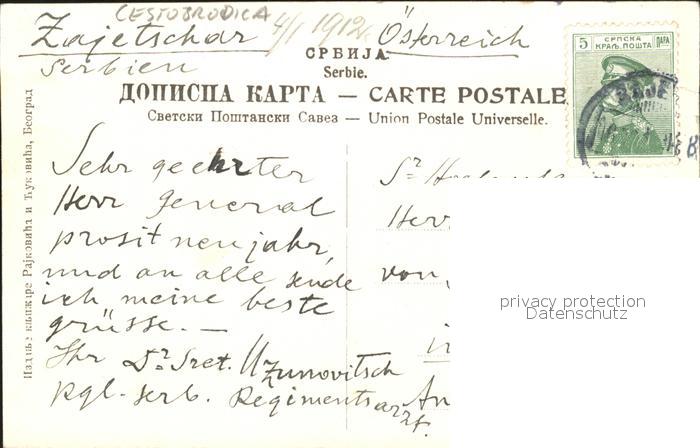 CESTOBRODICA
Zajetschar 4/I 1912 Österreich
Serbien
СРБИЈА
Serbie.
ДОПИСНА КАРТА — CARTE POSTALE
Светски Поштански Савез — Union Postale Universelle.
5 СРПСКА ПАРА
КРАЉ. ПОШТА
Sehr geehrter
Herr General
prosit neujahr,
und an alle sende
ich meine beste
grüsse. —
Ihr Dr Sret. Uzunovitsch
kgl.-serb. Regimentsarzt.
Sr
Herr
von
in
An
privacy protection
Datenschutz
Издање књижаре Рајковића и Ћуковића, Београд